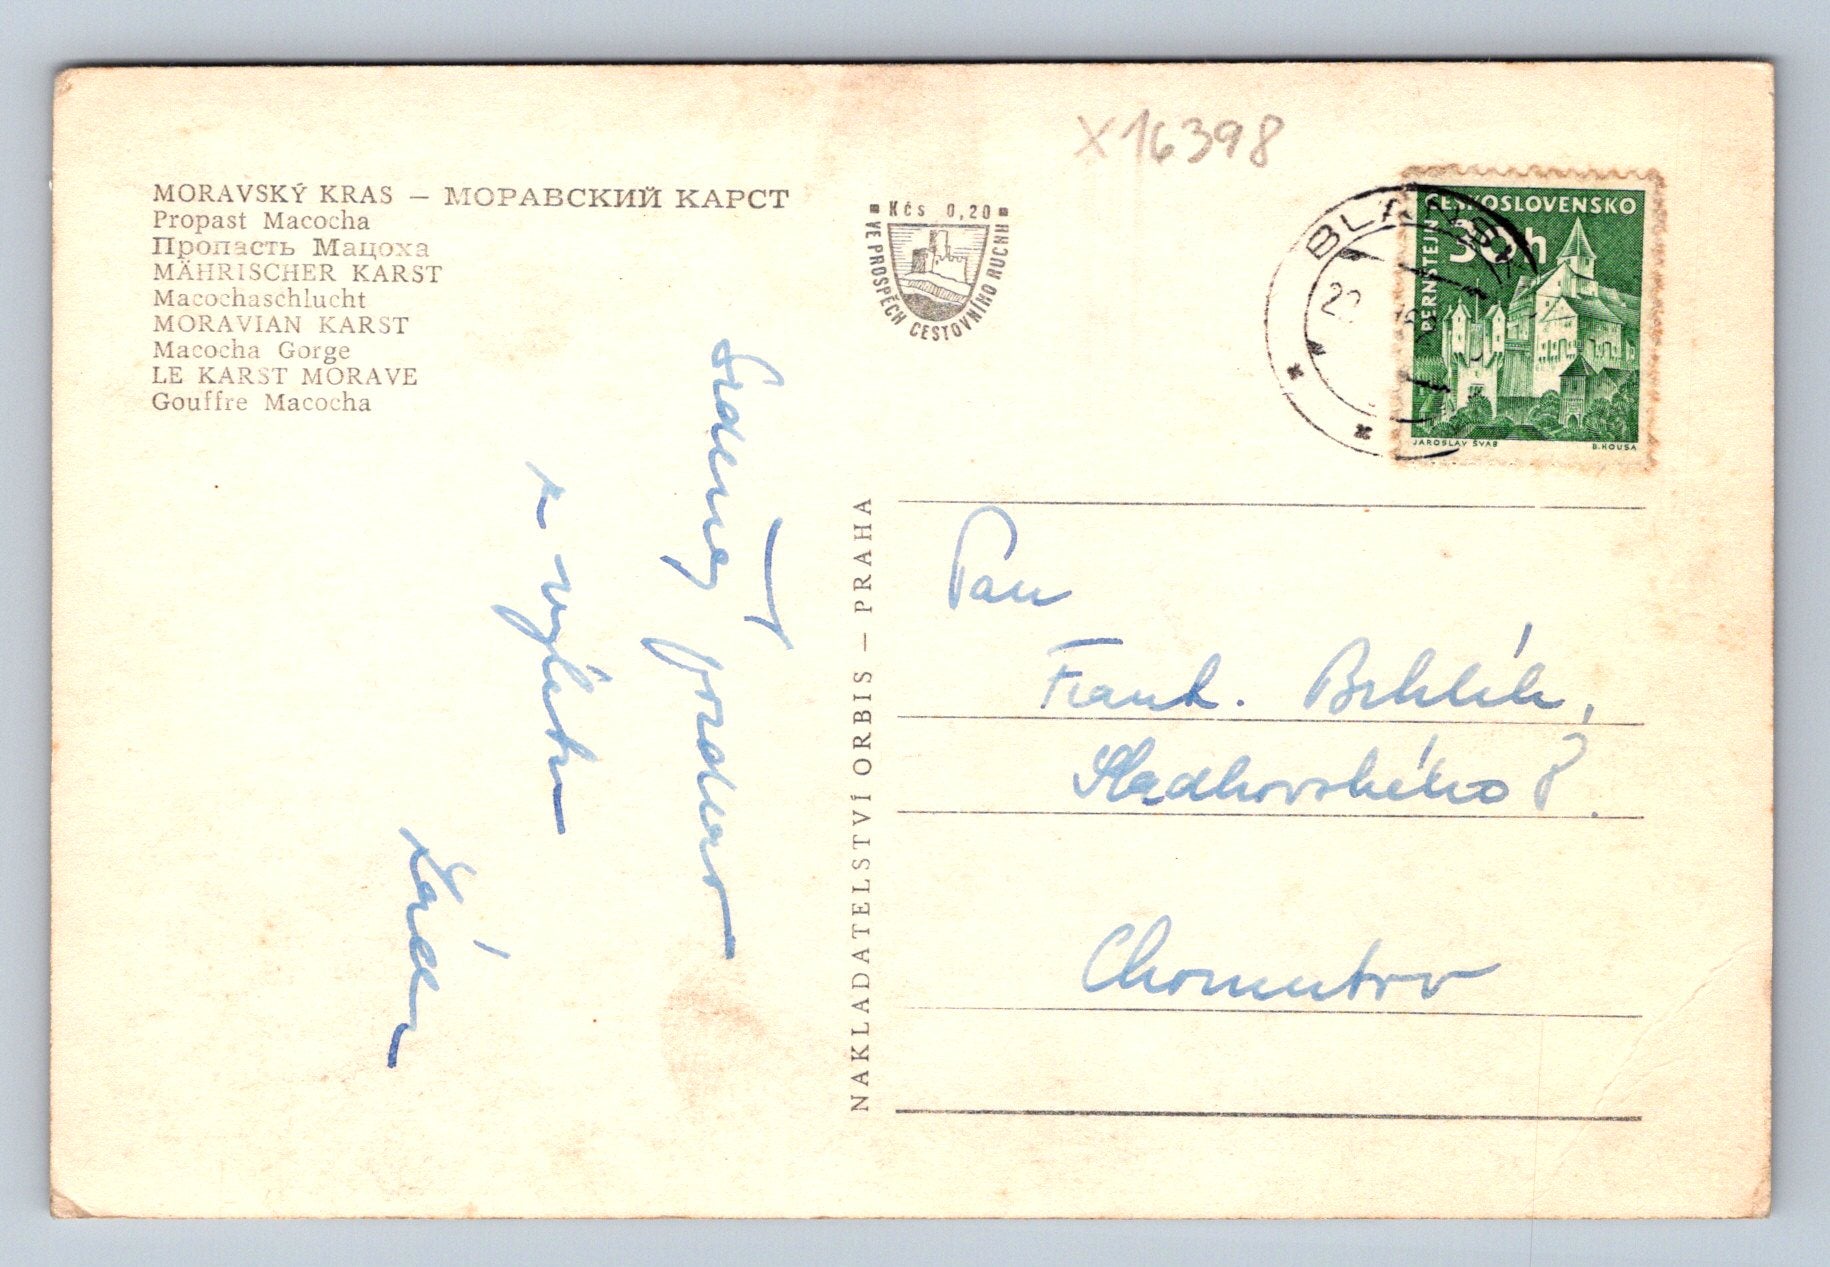 X16398
MORAVSKÝ KRAS – МОРАВСКИЙ КАРСТ
Propast Macocha
Пропасть Мацоха
MÄHRISCHER KARST
Macochaschlucht
MORAVIAN KARST
Macocha Gorge
LE KARST MORAVE
Gouffre Macocha
Kčs 0,20
VE PROSPĚCH CESTOVNÍHO RUCHU
BLANSKO
ČESKOSLOVENSKO
30h
PERNŠTEJN
JAROSLAV ŠVAB
B. HOUSA
Srdečný pozdrav
z výletu
NAKLADATELSTVÍ ORBIS – PRAHA
Pan
Frant. Brhlík,
Sladkovského 8.
Chomutov